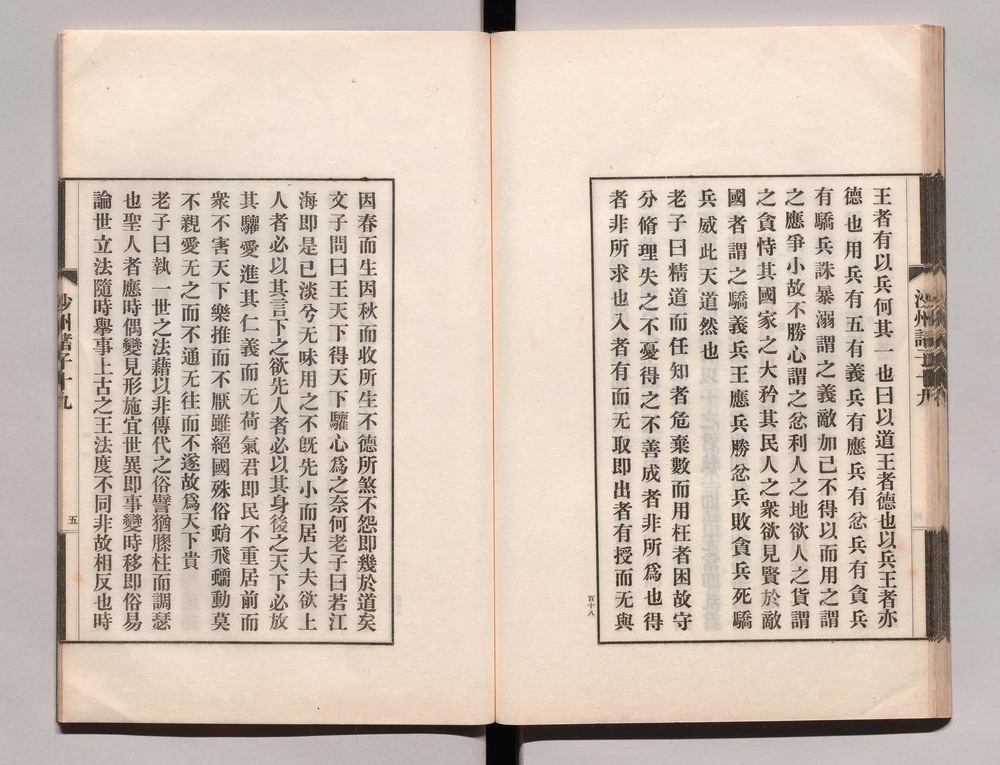 王者有以兵何其一也曰以道王者德也以兵王者亦
德也用兵有五有義兵有應兵有忿兵有貪兵
有驕兵誅暴溺謂之義敵加己不得以而用之謂
之應爭小故不勝心謂之忿利人之地欲人之貨謂
之貪恃其國家之大矜其民人之衆欲見賢於敵
國者謂之驕義兵王應兵勝忿兵敗貪兵死驕
兵威此天道然也
老子曰精道而任知者危棄數而用枉者困故守
分脩理失之不憂得之不善成者非所爲也得
者非所求也入者有而无取即出者有授而无與
百十八
因春而生因秋而收所生不德所煞不怨即幾於道矣
文子問曰王天下得天下驩心爲之奈何老子曰若江
海即是已淡兮无味用之不旣先小而居大夫欲上
人者必以其言下之欲先人者必以其身後之天下必放
其驩愛進其仁義而无荷氣君即民不重居前而
衆不害天下樂推而不厭雖絕國殊俗蛸飛蠕動莫
不親愛无之而不通无往而不遂故爲天下貴
老子曰執一世之法藉以非傳代之俗譬猶膠柱而調瑟
也聖人者應時偶變見形施宜世異即事變時移即俗易
論世立法隨時擧事上古之王法度不同非故相反也時
沙州諸子十九
五